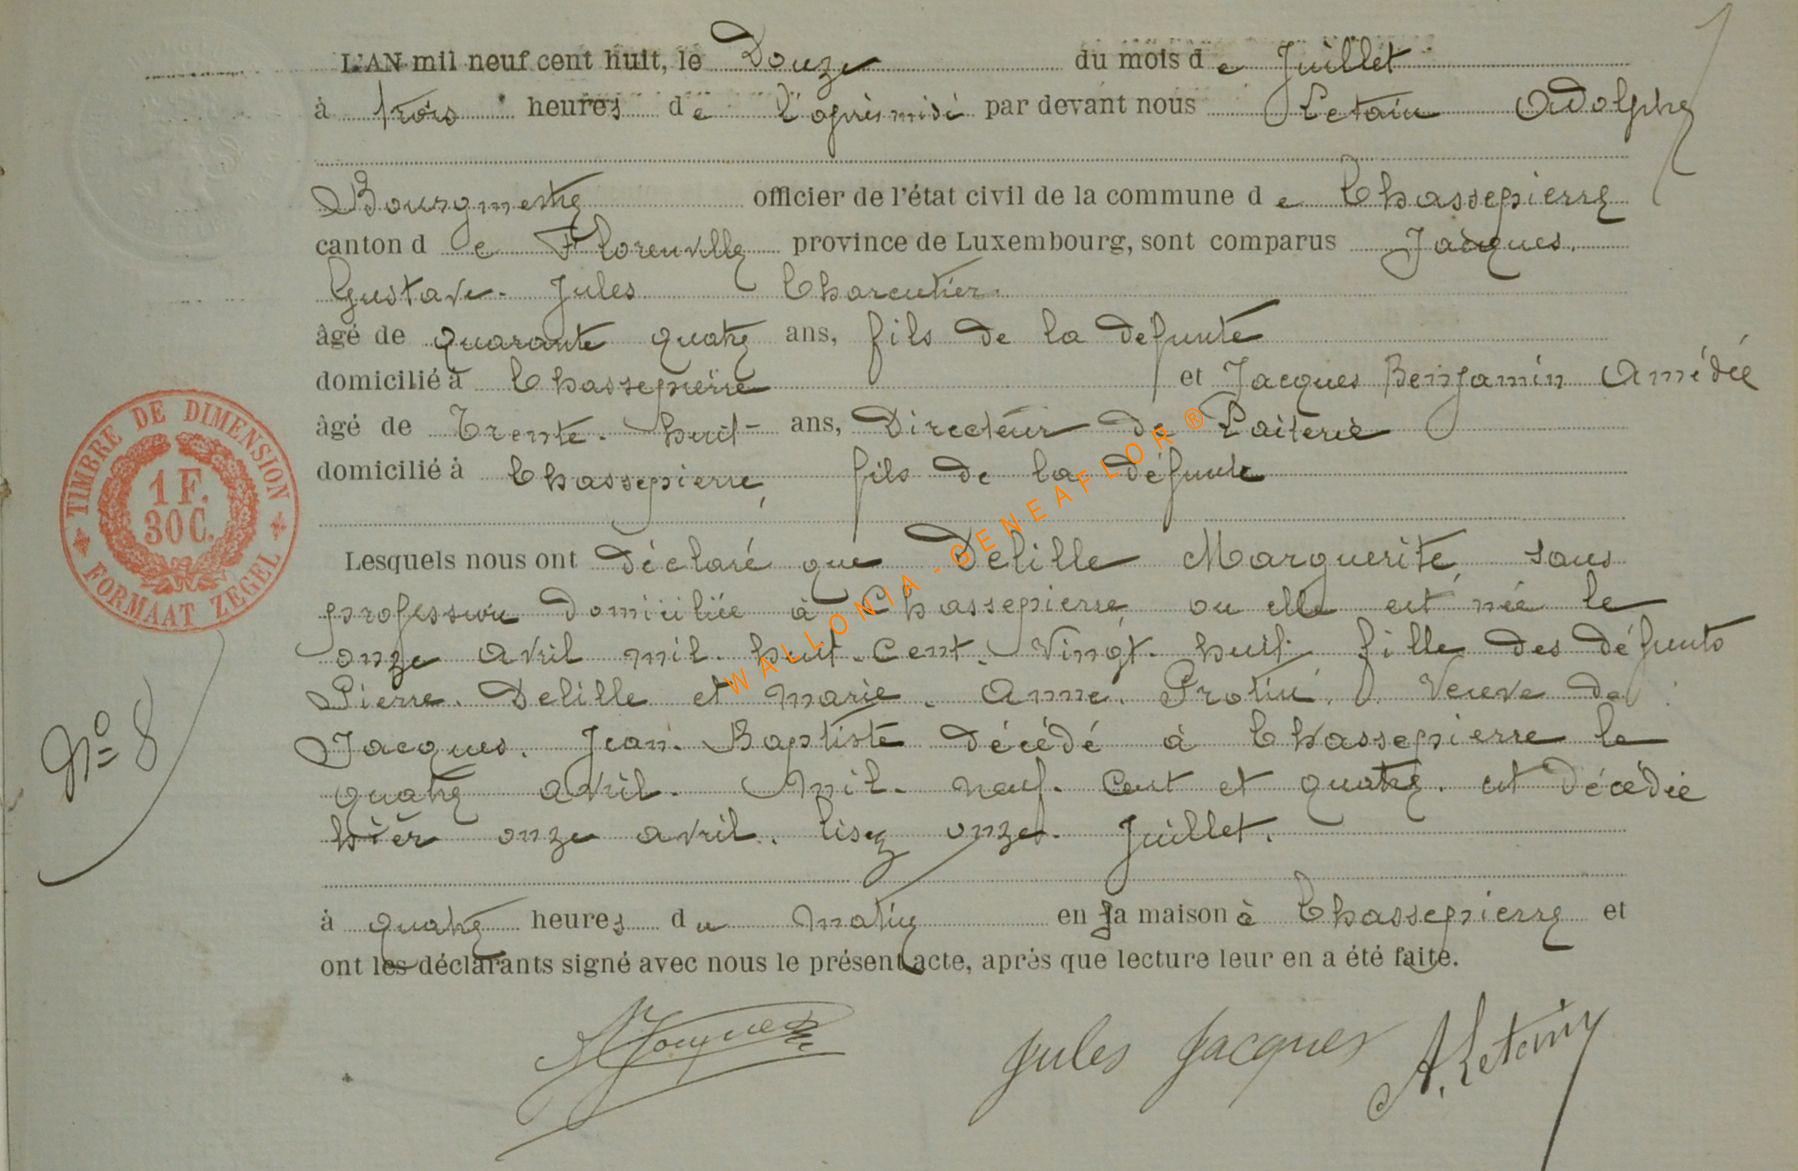 L'AN mil neuf cent huit, le Douze du mois de Juillet
à trois heures de l'après midi par devant nous Letain Adolphe
Bourgmestre officier de l'état civil de la commune de Chassepierre
canton de Florenville province de Luxembourg, sont comparus Jacques.
Gustave. Jules Charcutier.
âgé de quarante quatre ans, fils de la défunte
domicilié à Chassepierre et Jacques Benjamin Amédée
âgé de Trente. huit ans, Directeur de Laiterie
domicilié à Chassepierre, fils de la défunte
Lesquels nous ont déclaré que Delille Marguerite, sans
profession domiciliée à Chassepierre ou elle est née le
onze avril mil. huit. cent. vingt. huit. fille des défunts
Pierre. Delille et Marie. Anne. Protin, Veuve de
Jacques. Jean. Baptiste décédé à Chassepierre le
quatre avril. mil. neuf. cent et quatre. est décédée
hier onze avril. lisez onze. Juillet.
à quatre heures du matin en sa maison à Chassepierre et
ont les déclarants signé avec nous le présent acte, après que lecture leur en a été faite.
Jacques
Jules Jacques
A. Letain
N° 8
TIMBRE DE DIMENSION
1 F.
30 C.
FORMAAT ZEGEL
WALLONIA-GENEAFLOR®